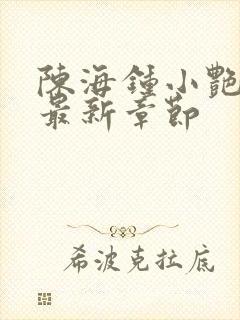 陳海鍾小艷
最新章節
希波克拉底